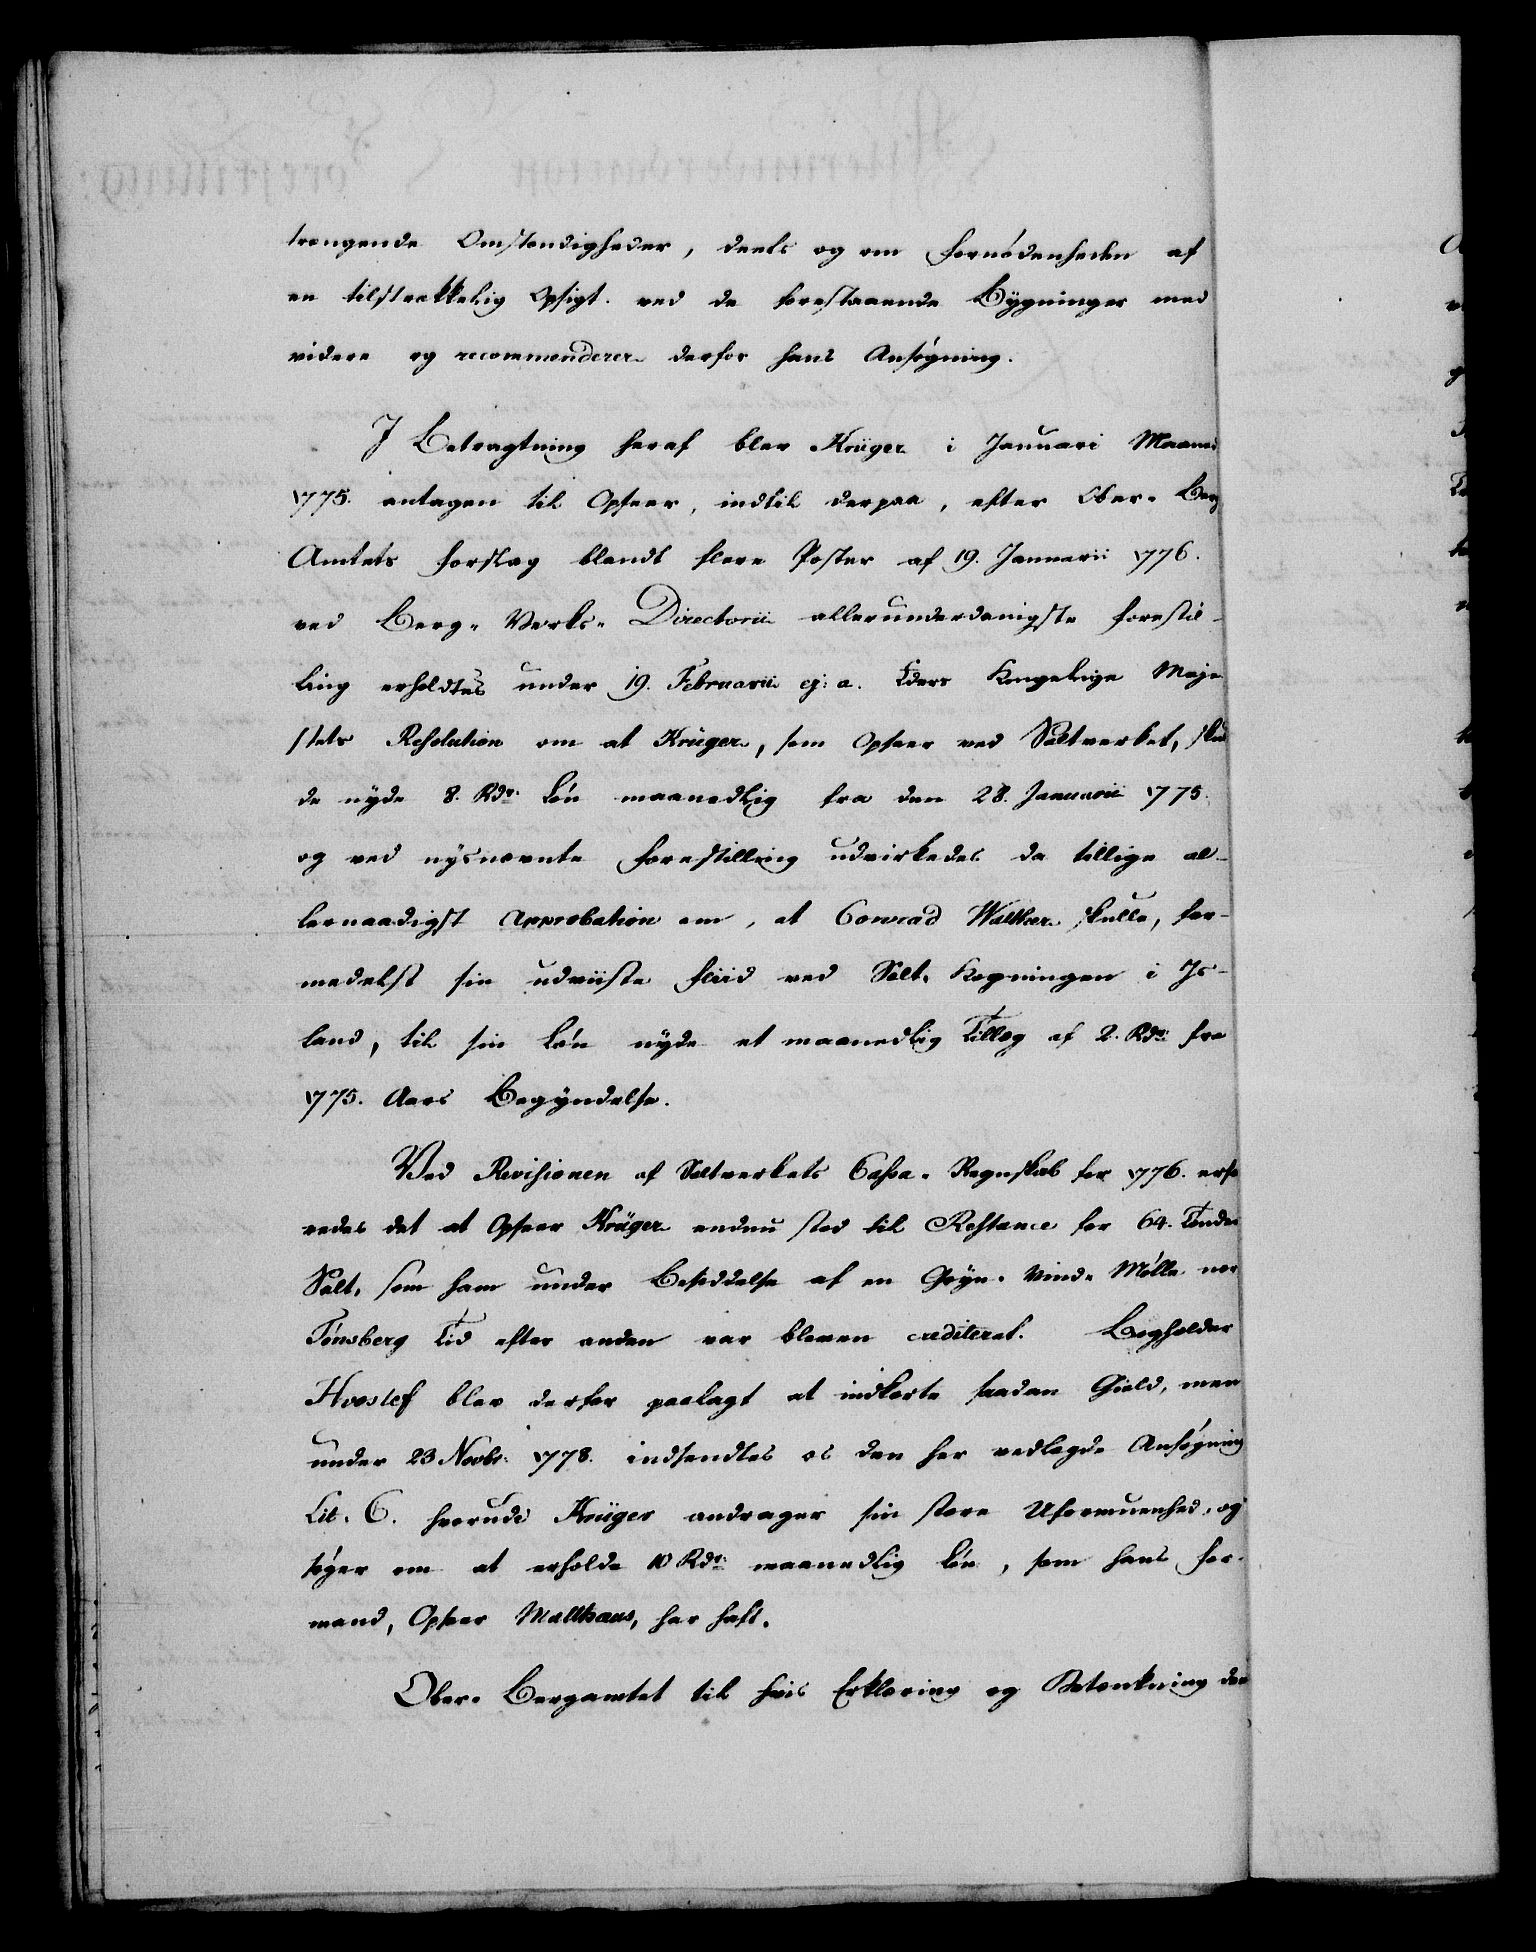 trængende Omstændigheder, deels og om Fornødenheden af
en tilstrækkelig Opsigt ved de forestaaende Bygninger med
videre og recommenderer derfor hans Ansøgning.
I Betragtning heraf blev Krüger i Januari Maaned
1775. antagen til Opseer, indtil derpaa, efter Ober-Berg
Amtets Forslag blandt flere Poster af 19. Januarii 1776.
ved Berg-Verks-Directorii allerunderdanigste Forestil-
ling erholdtes under 19. Februarii ej: a. Eders Kongelige Maje
stets Resolution om at Krüger, som Opseer ved Saltverket, skul
de nyde 8. Rdr. Løn maanedlig fra den 28. Januarii 1775.
og ved nysnævnte Forestilling udvirkedes da tillige al-
lernaadigst Approbation om, at Conrad Walther skulle, for-
medelst sin udviiste Fliid ved Salt-Kogningen i Is-
land, til sin Løn nyde et maanedlig Tillæg af 2. Rdr. fra
1775. Aars Begyndelse.
Ved Revisionen af Saltverkets Cassa-Regnskab for 1776. erfa
redes det at Opseer Krüger endnu stod til Restance for 64. Tønder
Salt, som ham under Besiddelse af en Gryn-Vind-Mølle nær
Tønsberg Tid efter anden var bleven crediteret. Bogholder
Hvoslef blev derfor paalagt at indkorte saadan Gield, men
under 23 Novbr. 1778. indsendtes os den her vedlagde Ansøgning
Lit. C. hvorudi Krüger andrager sin store Uformuenhed, og
søger om at erholde 10 Rdr. maanedlig Løn, som hans For-
mand, Opseer Matthæus, har haft.
Ober-Bergamtet til hvis Erklæring og Betænkning den